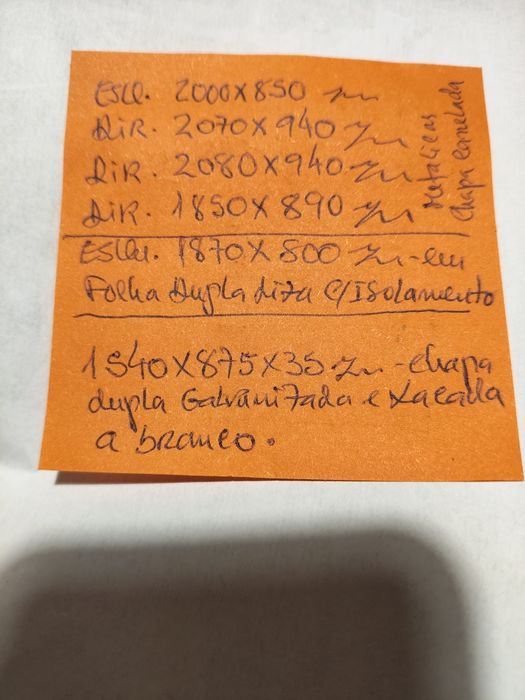 ESQ. 2000x850 mm
DIR. 2070x940 mm
DIR. 2080x940 mm
DIR. 1850x890 mm
Metalicas
Chapa Canelada
1870x800 mm - em
Folha Dupla Liza c/ISolamento
1540x875x35 mm - chapa
dupla Galvanizada e Lacada
a branco.